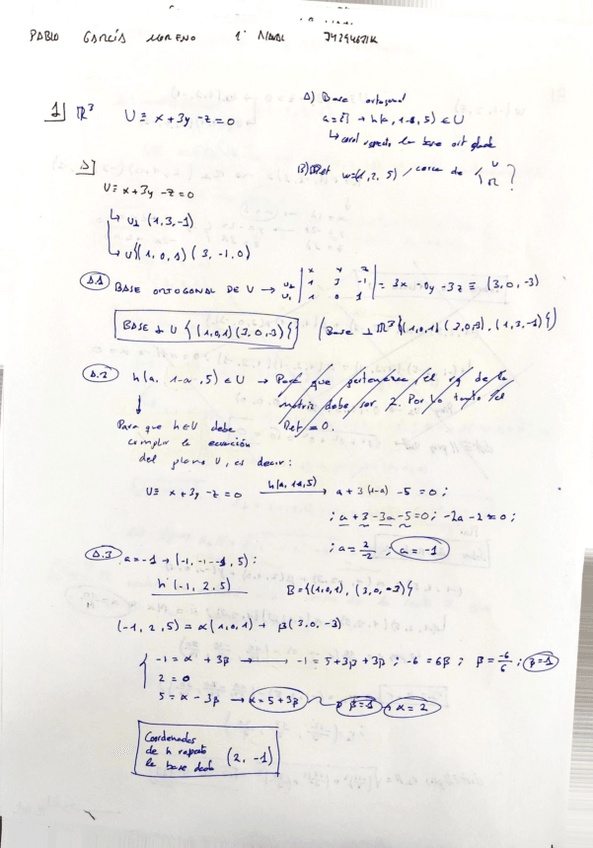 PABLO GARCÍA MORENO 1º NAVAL
1] ℝ³ U ≡ x+3y-z=0
A) Base ortogonal
a=[?] → h(a, 1-a, 5) ∈ U
↳ coord respecto la base ort
U ≡ x+3y-z=0
↳ U⊥ (1,3,-1)
↳ U{(1,0,1)(3,-1,0)
A.1 BASE ORTOGONAL DE U → U⊥ U₁ | x y z 1 3 -1 1 0 1 | = 3x - 0y - 3z ≡ (3,0,-3)
BASE ⊥ U {(1,0,1)(3,0,-3)} (Base ⊥ ℝ³{(1,0,1)(3,0,-3), (1,3,-1)})
A.2 h(a, 1-a, 5) ∈ U → Para que pertenezca el rg de la
matriz debe ser 2. Por lo tanto el
Det = 0.
Para que h∈U debe
cumplir la ecuación
del plano U, es decir:
U ≡ x+3y-z=0 h(a,1-a,5) → a+3(1-a)-5=0;
; a+3-3a-5=0; -2a-2=0;
; a = 2/-2 ; a=-1
A.3 a=-1 → (-1, -1--1, 5):
h(-1, 2, 5) B={(1,0,1), (3,0,-3)}
(-1, 2, 5) = α(1,0,1) + β(3,0,-3)
-1 = α + 3β → -1 = 5+3β+3β ; -6 = 6β ; β = -6/6 ; β=-1
2 = 0
5 = α - 3β → α = 5+3β β=-1 → α=2
Coordenadas
de h respecto
la base dada (2, -1)